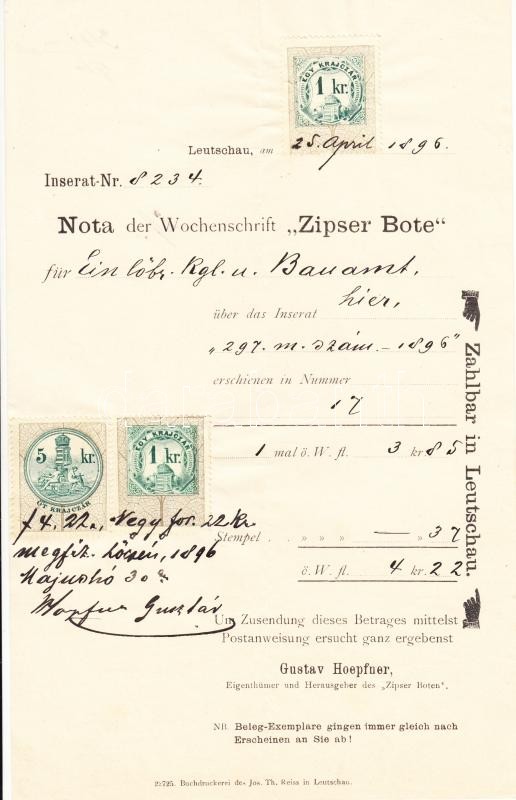 EGY KRAJCZÁR
1 kr.
Leutschau, am 25. April 1896.
Inserat-Nr. 8234.
Nota der Wochenschrift „Zipser Bote“
für Ein löbr. Kgl. u. Bauamt,
hier,
über das Inserat
„297. m. szám. – 1896“
erschienen in Nummer
17
1 mal ö. W. fl. 3 kr 85
5 kr.
ÖT KRAJCZÁR
EGY KRAJCZÁR
1 kr.
Stempel „ „ „ — „ 37
ö. W. fl. 4 kr. 22
f 4. 22, Negy for. 22 kr
megfiz. Lőcsén, 1896
Majushó 30
Hopfner Gusztáv
Um Zusendung dieses Betrages mittelst
Postanweisung ersucht ganz ergebenst
Gustav Hoepfner,
Eigenthümer und Herausgeber des „Zipser Boten“.
NB. Beleg-Exemplare gingen immer gleich nach
Erscheinen an Sie ab!
Zahlbar in Leutschau.
22725. Buchdruckerei des Jos. Th. Reiss in Leutschau.